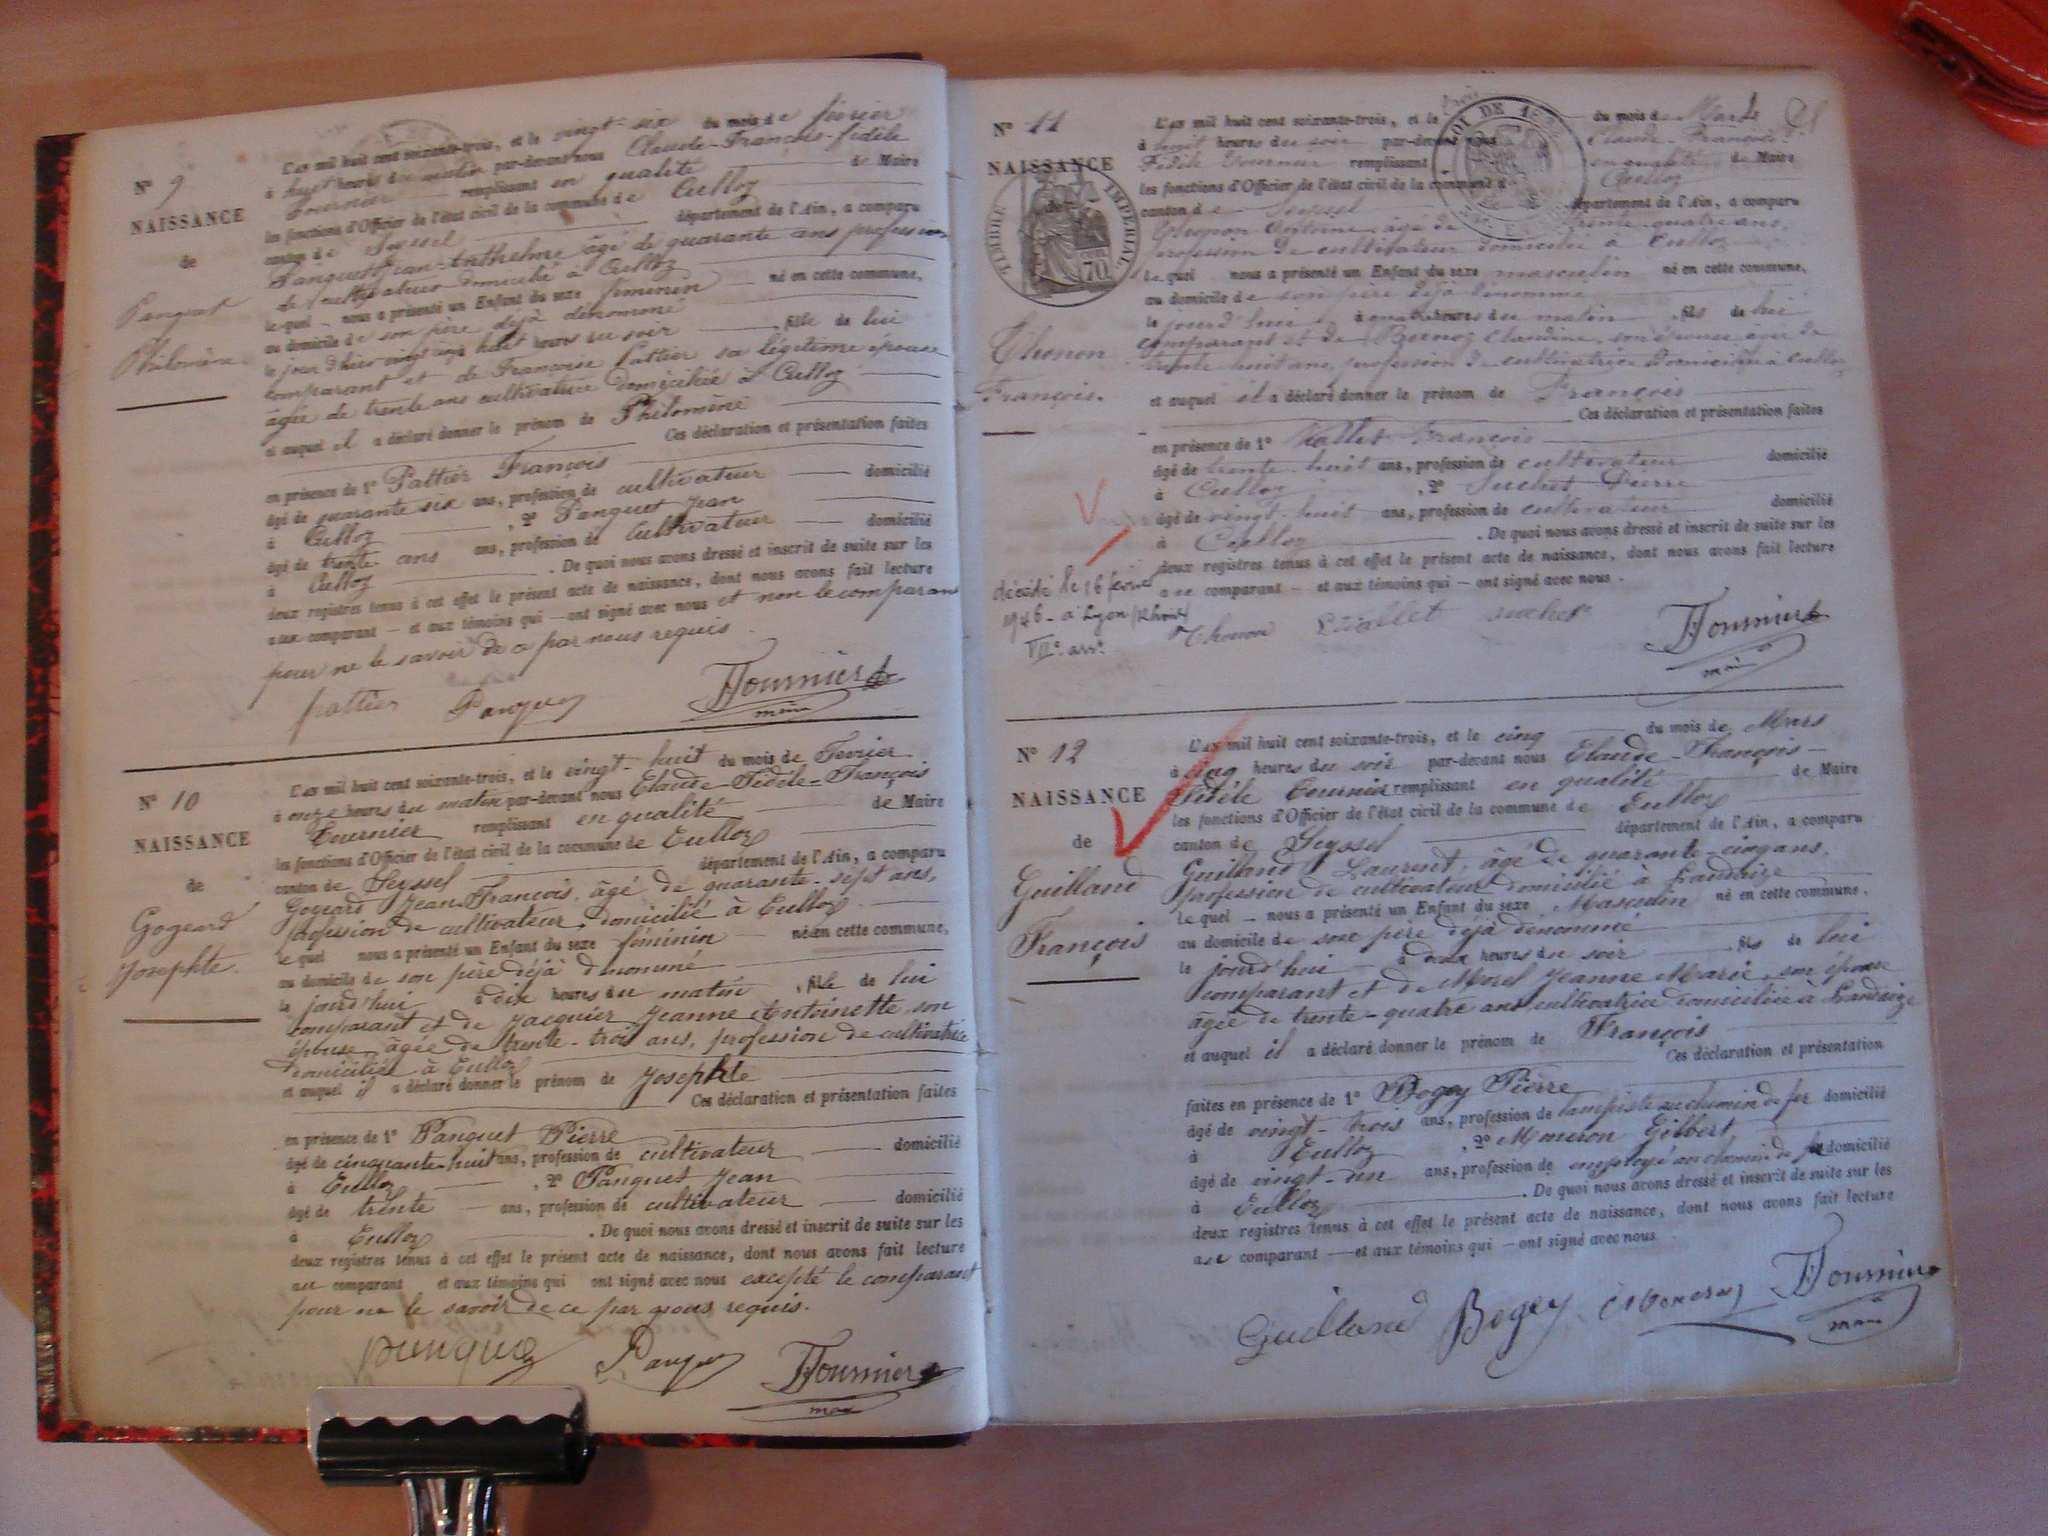 N° 9
NAISSANCE
de
Panguet
Philomène
L'an mil huit cent soixante-trois, et le vingt-six du mois de février
à huit heures du matin par-devant nous Claude-François-fidèle
Fournier remplissant en qualité de Maire
les fonctions d'Officier de l'état civil de la commune de Culloz
canton de Seyssel département de l'Ain, a comparu
Panguet Jean-Anthelme âgé de quarante ans profession
de cultivateur domicilié à Culloz
lequel nous a présenté un Enfant du sexe féminin né en cette commune,
au domicile de son père déjà dénommé
le jour d'hier vingt cinq huit heures du soir, fille de lui
comparant et de Françoise Pattier sa légitime épouse
âgée de trente ans cultivatrice domiciliée à Culloz
et auquel il a déclaré donner le prénom de Philomène
Ces déclaration et présentation faites
en présence de 1° Pattier François
âgé de quarante six ans, profession de cultivateur domicilié
à Culloz, 2° Panguet Jean
âgé de trente ans ans, profession de cultivateur domicilié
à Culloz. De quoi nous avons dressé et inscrit de suite sur les
deux registres tenus à cet effet le présent acte de naissance, dont nous avons fait lecture
aux comparant et aux témoins qui ont signé avec nous et non le comparant
pour ne le savoir de ce par nous requis.
pattier Panguet Fournier
maire
N° 10
NAISSANCE
de
Gojeard
Josephte
L'an mil huit cent soixante-trois, et le vingt-huit du mois de Fevrier
à onze heures du matin par-devant nous Claude-Fidèle-François
Fournier remplissant en qualité de Maire
les fonctions d'Officier de l'état civil de la commune de Culloz
canton de Seyssel département de l'Ain, a comparu
Gojeard Jean François, âgé de quarante-sept ans,
profession de cultivateur, domicilié à Culloz
lequel nous a présenté un Enfant du sexe féminin né en cette commune,
au domicile de son père déjà dénommé
le jourd'hui à dix heures du matin, fille de lui
comparant et de Jacquier Jeanne Antoinette son
épouse, âgée de trente-trois ans, profession de cultivatrice
domiciliée à Culloz
et auquel il a déclaré donner le prénom de Josephte
Ces déclaration et présentation faites
en présence de 1° Panguet Pierre
âgé de cinquante-huit ans, profession de cultivateur domicilié
à Culloz, 2° Panguet Jean
âgé de trente ans, profession de cultivateur domicilié
à Culloz. De quoi nous avons dressé et inscrit de suite sur les
deux registres tenus à cet effet le présent acte de naissance, dont nous avons fait lecture
au comparant et aux témoins qui ont signé avec nous excepté le comparant
pour ne le savoir de ce par nous requis.
Panguet Fournier
maire
N° 11
NAISSANCE
de
TIMBRE IMPÉRIAL
70
Thonon
François.
décédé le 16 février
1946 - à Lyon (Rhône)
VIIe. arrt.
LOI DE
L'an mil huit cent soixante-trois, et le trois du mois de Mars
à huit heures du soir par-devant nous Claude-François
Fidèle Fournier remplissant en qualité de Maire
les fonctions d'Officier de l'état civil de la commune de Culloz
canton de Seyssel département de l'Ain, a comparu
Thonon Antoine, âgé de trente-quatre ans,
profession de cultivateur domicilié à Culloz
lequel nous a présenté un Enfant du sexe masculin né en cette commune,
au domicile de son père déjà dénommé
le jourd'hui à quatre heures du matin, fils de lui
comparant et de Claudine, son épouse, âgée de
trente huit ans, profession de cultivatrice domiciliée à Culloz
et auquel il a déclaré donner le prénom de François
Ces déclaration et présentation faites
en présence de 1° Viallet François
âgé de trente-huit ans, profession de cultivateur domicilié
à Culloz, 2° Suchet Pierre
âgé de vingt-huit ans, profession de cultivateur domicilié
à Culloz. De quoi nous avons dressé et inscrit de suite sur les
deux registres tenus à cet effet le présent acte de naissance, dont nous avons fait lecture
au comparant et aux témoins qui ont signé avec nous.
Thonon Viallet suchet Fournier
maire
N° 12
NAISSANCE
de
Guilland
François
L'an mil huit cent soixante-trois, et le cinq du mois de Mars
à cinq heures du soir par-devant nous Claude-François-
Fidèle Fournier remplissant en qualité de Maire
les fonctions d'Officier de l'état civil de la commune de Culloz
canton de Seyssel département de l'Ain, a comparu
Guilland Laurent, âgé de quarante-cinq ans,
profession de cultivateur domicilié à Landaize
lequel nous a présenté un Enfant du sexe Masculin né en cette commune,
au domicile de son père déjà dénommé
le jourd'hui à deux heures du soir, fils de lui
comparant et de Morel Jeanne Marie, son épouse
âgée de trente-quatre ans cultivatrice domiciliée à Landaize
et auquel il a déclaré donner le prénom de François
Ces déclaration et présentation
faites en présence de 1° Bogey Pierre
âgé de vingt-trois ans, profession de lampiste au chemin de fer domicilié
à Culloz, 2° Gilbert
âgé de vingt-un ans, profession de employé au chemin de fer domicilié
à Culloz. De quoi nous avons dressé et inscrit de suite sur les
deux registres tenus à cet effet le présent acte de naissance, dont nous avons fait lecture
au comparant et aux témoins qui ont signé avec nous
Guilland Bogey Fournier
maire